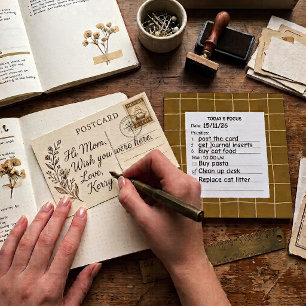 POSTCARD
Hi Mom,
Wish you were here.
Love,
Kerry
TODAY'S FOCUS
Date: 15/11/25
Priorities:
1 post the card
2 get journal inserts
3 buy cat food
TO DO LIST
Buy pasta
Clean up desk
Replace cat litter